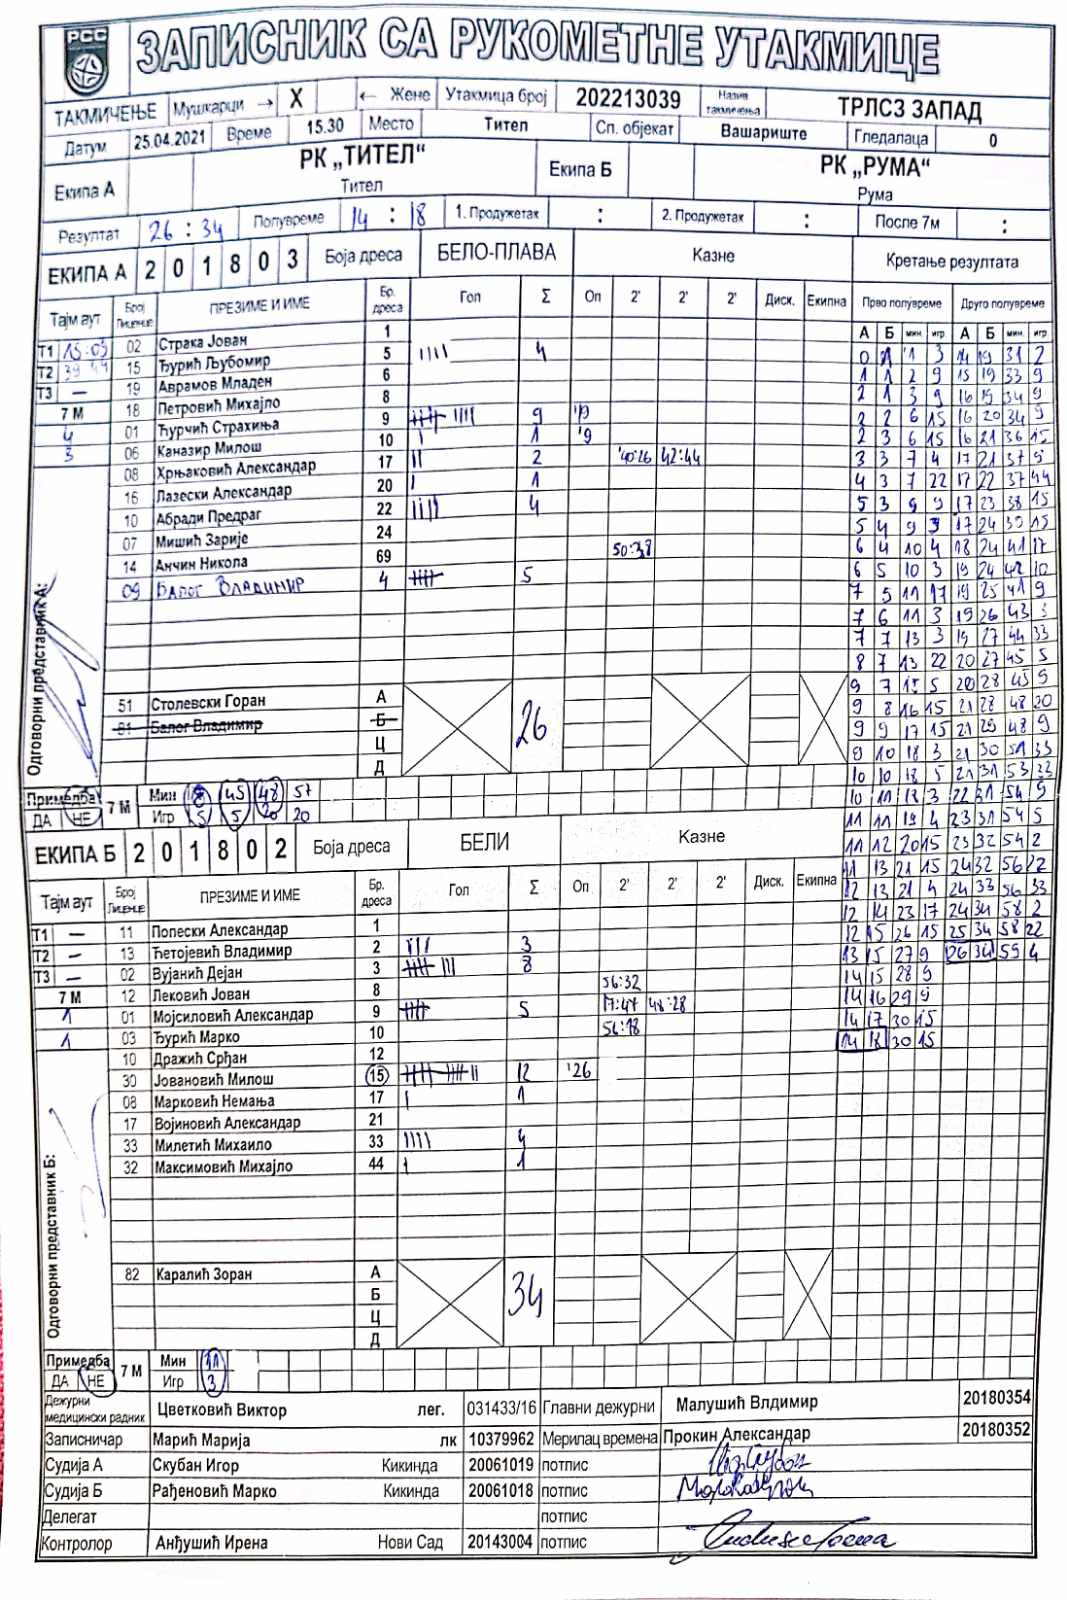 РСС
ЗАПИСНИК СА РУКОМЕТНЕ УТАКМИЦЕ
ТАКМИЧЕЊЕ Мушкарци → X ← Жене Утакмица број 202213039 Назив такмичења ТРЛСЗ ЗАПАД
Датум 25.04.2021 Време 15.30 Место Тител Сп. објекат Вашариште Гледалаца 0
Екипа А РК „ТИТЕЛ“ Тител Екипа Б РК „РУМА“ Рума
Резултат 26 : 34 Полувреме 14 : 18 1. Продужетак : 2. Продужетак : После 7м :
ЕКИПА А 2 0 1 8 0 3 Боја дреса БЕЛО-ПЛАВА Казне Кретање резултата
Тајм аут Број Лиценце ПРЕЗИМЕ И ИМЕ Бр. дреса Гол Σ Оп 2' 2' 2' Диск. Екипна Прво полувреме Друго полувреме
А Б мин. игр А Б мин. игр
T1 15:03 02 Страка Јован 1
T2 15 Ђурић Љубомир 5 IIII 4
T3 — 19 Аврамов Младен 6
7 М 18 Петровић Михајло 8
4 01 Ћурчић Страхиња 9 IIIII IIII 9 '19
3 06 Каназир Милош 10 I 1 '9
08 Хрњаковић Александар 17 II 2 40:26 42:44
16 Лазески Александар 20 I 1
10 Абради Предраг 22 IIII 4
07 Мишић Зарије 24
14 Анчин Никола 69 50:38
09 БАЛОГ ВЛАДИМИР 4 IIIII 5
Одговорни представник А:
51 Столевски Горан А
81 Балог Владимир Б
Ц
Д
26
Примедба ДА НЕ 7 М Мин 45 48 57
Игр 5 5 20 20
ЕКИПА Б 2 0 1 8 0 2 Боја дреса БЕЛИ Казне
Тајм аут Број Лиценце ПРЕЗИМЕ И ИМЕ Бр. дреса Гол Σ Оп 2' 2' 2' Диск. Екипна
T1 — 11 Попески Александар 1
T2 — 13 Ћетојевић Владимир 2 III 3
T3 — 02 Вујанић Дејан 3 IIIII III 8
7 М 12 Лековић Јован 8 56:32
1 01 Мојсиловић Александар 9 IIIII 5 17:47 48:28
1 03 Ђурић Марко 10 56:18
10 Дражић Срђан 12
30 Јовановић Милош 15 IIIII IIIII II 12 '26
08 Марковић Немања 17 I 1
17 Војиновић Александар 21
33 Милетић Михаило 33 IIII 4
32 Максимовић Михајло 44 I 1
Одговорни представник Б:
82 Каралић Зоран А
Б
Ц
Д
34
Примедба ДА НЕ 7 М Мин 31
Игр 3
0 1 1 3 14 19 31 2
1 1 2 9 15 19 33 9
2 1 3 9 16 19 34 9
2 2 6 15 16 20 34 9
2 3 6 15 16 21 36 15
3 3 7 4 17 21 37 9
4 3 7 22 17 22 37 44
5 3 9 17 23 38 15
5 4 9 3 17 24 39 15
6 4 10 4 18 24 41 17
6 5 10 3 19 24 42 10
7 5 11 17 19 25 9
7 6 11 3 19 26 43 3
7 7 13 3 19 27 44 33
8 7 13 22 20 27 45 5
9 7 15 5 20 28 45 9
9 8 16 15 21 28 48 20
9 9 17 15 21 29 48 9
9 10 18 3 21 30 51 33
10 10 18 5 21 31 53 33
10 11 18 3 22 31 54 9
11 11 19 4 23 31 54 5
11 12 20 15 23 32 54 2
11 13 21 15 24 32 56 22
12 13 21 4 24 33 56 33
12 14 23 17 24 34 58 2
12 15 26 15 25 34 58 22
13 15 27 9 26 34 59 4
14 15 28 9
14 16 29 9
14 17 30 15
14 18 30 15
Дежурни медицински радник Цветковић Виктор лег. 031433/16 Главни дежурни Малушић Влдимир 20180354
Записничар Марић Марија лк 10379962 Мерилац времена Прокин Александар 20180352
Судија А Скубан Игор Кикинда 20061019 потпис
Судија Б Рађеновић Марко Кикинда 20061018 потпис
Делегат потпис
Контролор Анђушић Ирена Нови Сад 20143004 потпис